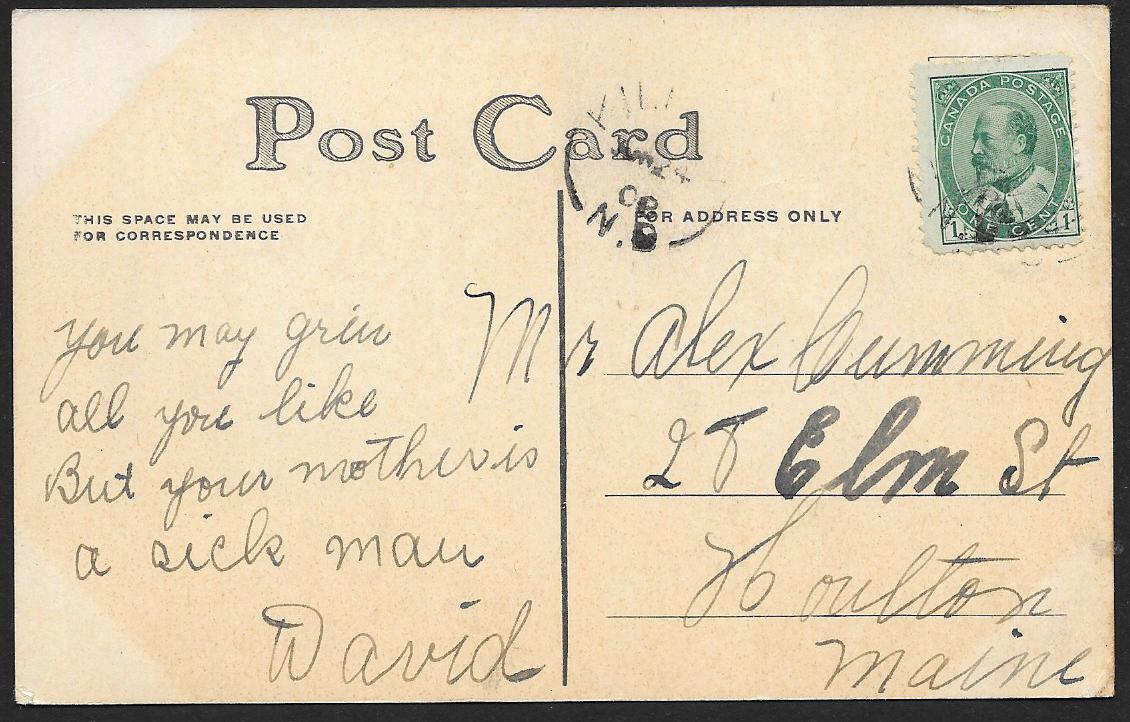 Post Card
THIS SPACE MAY BE USED
FOR CORRESPONDENCE
FOR ADDRESS ONLY
CANADA POSTAGE
1 ONE CENT 1
N.B
you may grin
all you like
But your mother is
a sick man
David
Mr Alex Cumming
28 Elm St
Houlton
Maine